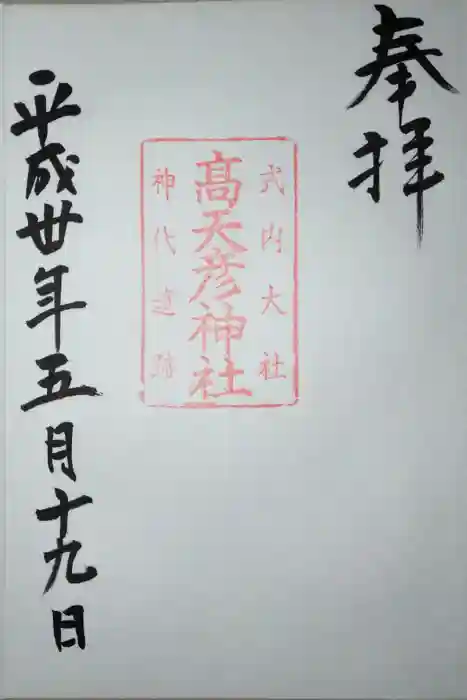 奉拝
式内大社
髙天彦神社
神代遺跡
平成卅年五月十九日